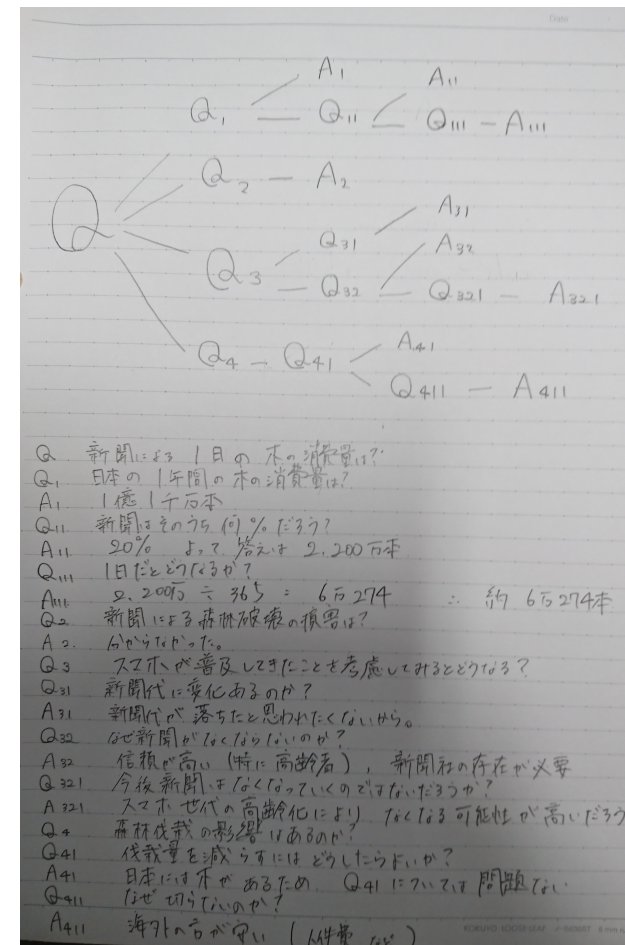 Date
A1 A11
Q1 Q11 Q111 - A111
Q2 - A2
Q
A31
Q31 A32
Q3 Q32 Q321 - A321
A41
Q4 - Q41
Q411 - A411
Q 新聞による1日の木の消費量は?
Q1 日本の1年間の木の消費量は?
A1 1億1千万本
Q11 新聞はそのうち何%だろう?
A11 20% よって答えは 2,200万本
Q111 1日だとどうなるか?
A111 2,200万 ÷ 365 = 6万274 ∴ 約 6万274本
Q2 新聞による森林破壊の損害は?
A2. 分からなかった。
Q3 スマホが普及してきたことを考慮してみるとどうなる?
Q31 新聞代に変化あるのか?
A31 新聞代が落ちたと思われたくないから。
Q32 なぜ新聞がなくならないのか?
A32 信頼が高い(特に高齢者), 新聞社の存在が必要
Q321 今後新聞はなくなっていくのではないだろうか?
A321 スマホ世代の高齢化により なくなる可能性が高いだろう
Q4 森林伐栽の影響はあるのか?
Q41 伐栽量を減らすにはどうしたらよいか?
A41 日本には木があるため Q41については問題ない
Q411 なぜ切らないのか?
A411 海外の方が安い (人件費など)
KOKUYO LOOSE-LEAF